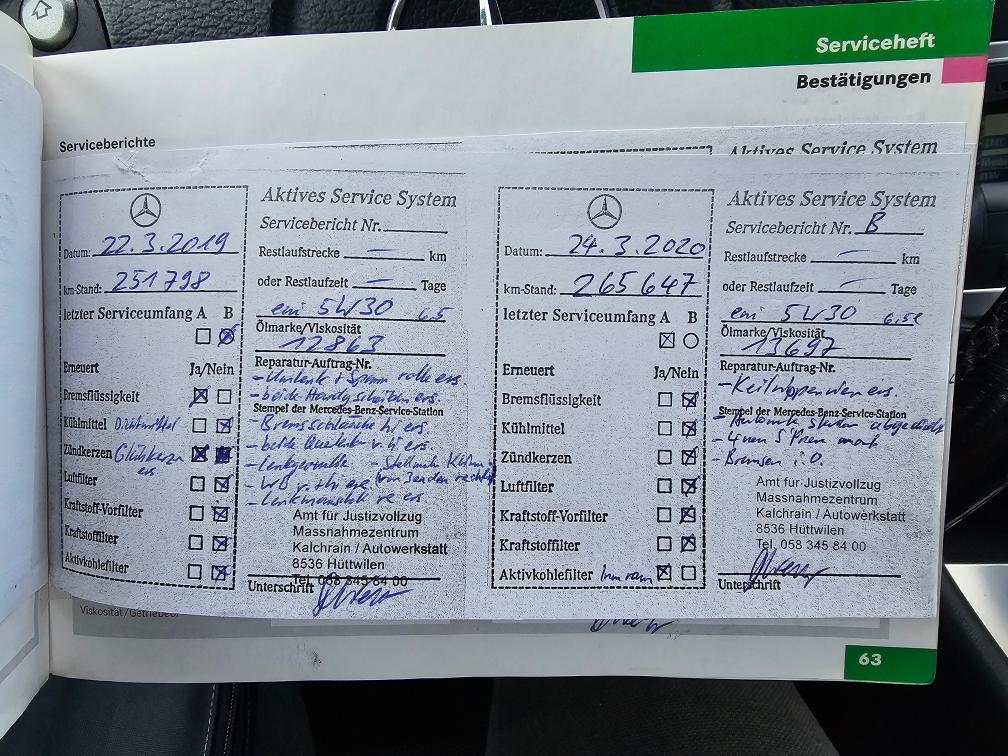 Serviceheft
Bestätigungen
Serviceberichte
Aktives Service System
Datum: 22.3.2019
km-Stand: 251798
letzter Serviceumfang A B
Erneuert Ja/Nein
Bremsflüssigkeit
Kühlmittel
Zündkerzen Glühkerzen
ers.
Luftfilter
Kraftstoff-Vorfilter
Kraftstoffilter
Aktivkohlefilter
Aktives Service System
Servicebericht Nr.
Restlaufstrecke — km
oder Restlaufzeit — Tage
eni 5W30 6,5
Ölmarke/Viskosität
12863
Reparatur-Auftrag-Nr.
- Umlenk + Spann rolle ers.
- beide Hardyscheiben ers.
Stempel der Mercedes-Benz-Service-Station
- Bremsschläuche hi ers.
- beide Querlenker v. hi ers.
Amt für Justizvollzug
Massnahmezentrum
Kalchrain / Autowerkstatt
8536 Hüttwilen
Tel. 058 345 84 00
Unterschrift
Datum: 24.3.2020
km-Stand: 265647
letzter Serviceumfang A B
Erneuert Ja/Nein
Bremsflüssigkeit
Kühlmittel
Zündkerzen
Luftfilter
Kraftstoff-Vorfilter
Kraftstoffilter
Aktivkohlefilter Innenraum
Aktives Service System
Servicebericht Nr. B
Restlaufstrecke — km
oder Restlaufzeit — Tage
eni 5W30
Ölmarke/Viskosität
13697
Reparatur-Auftrag-Nr.
- Keilrippenriemen ers.
Stempel der Mercedes-Benz-Service-Station
- Bremsen i.O.
Amt für Justizvollzug
Massnahmezentrum
Kalchrain / Autowerkstatt
8536 Hüttwilen
Tel. 058 345 84 00
Unterschrift
Viskosität/Getriebeöl
63